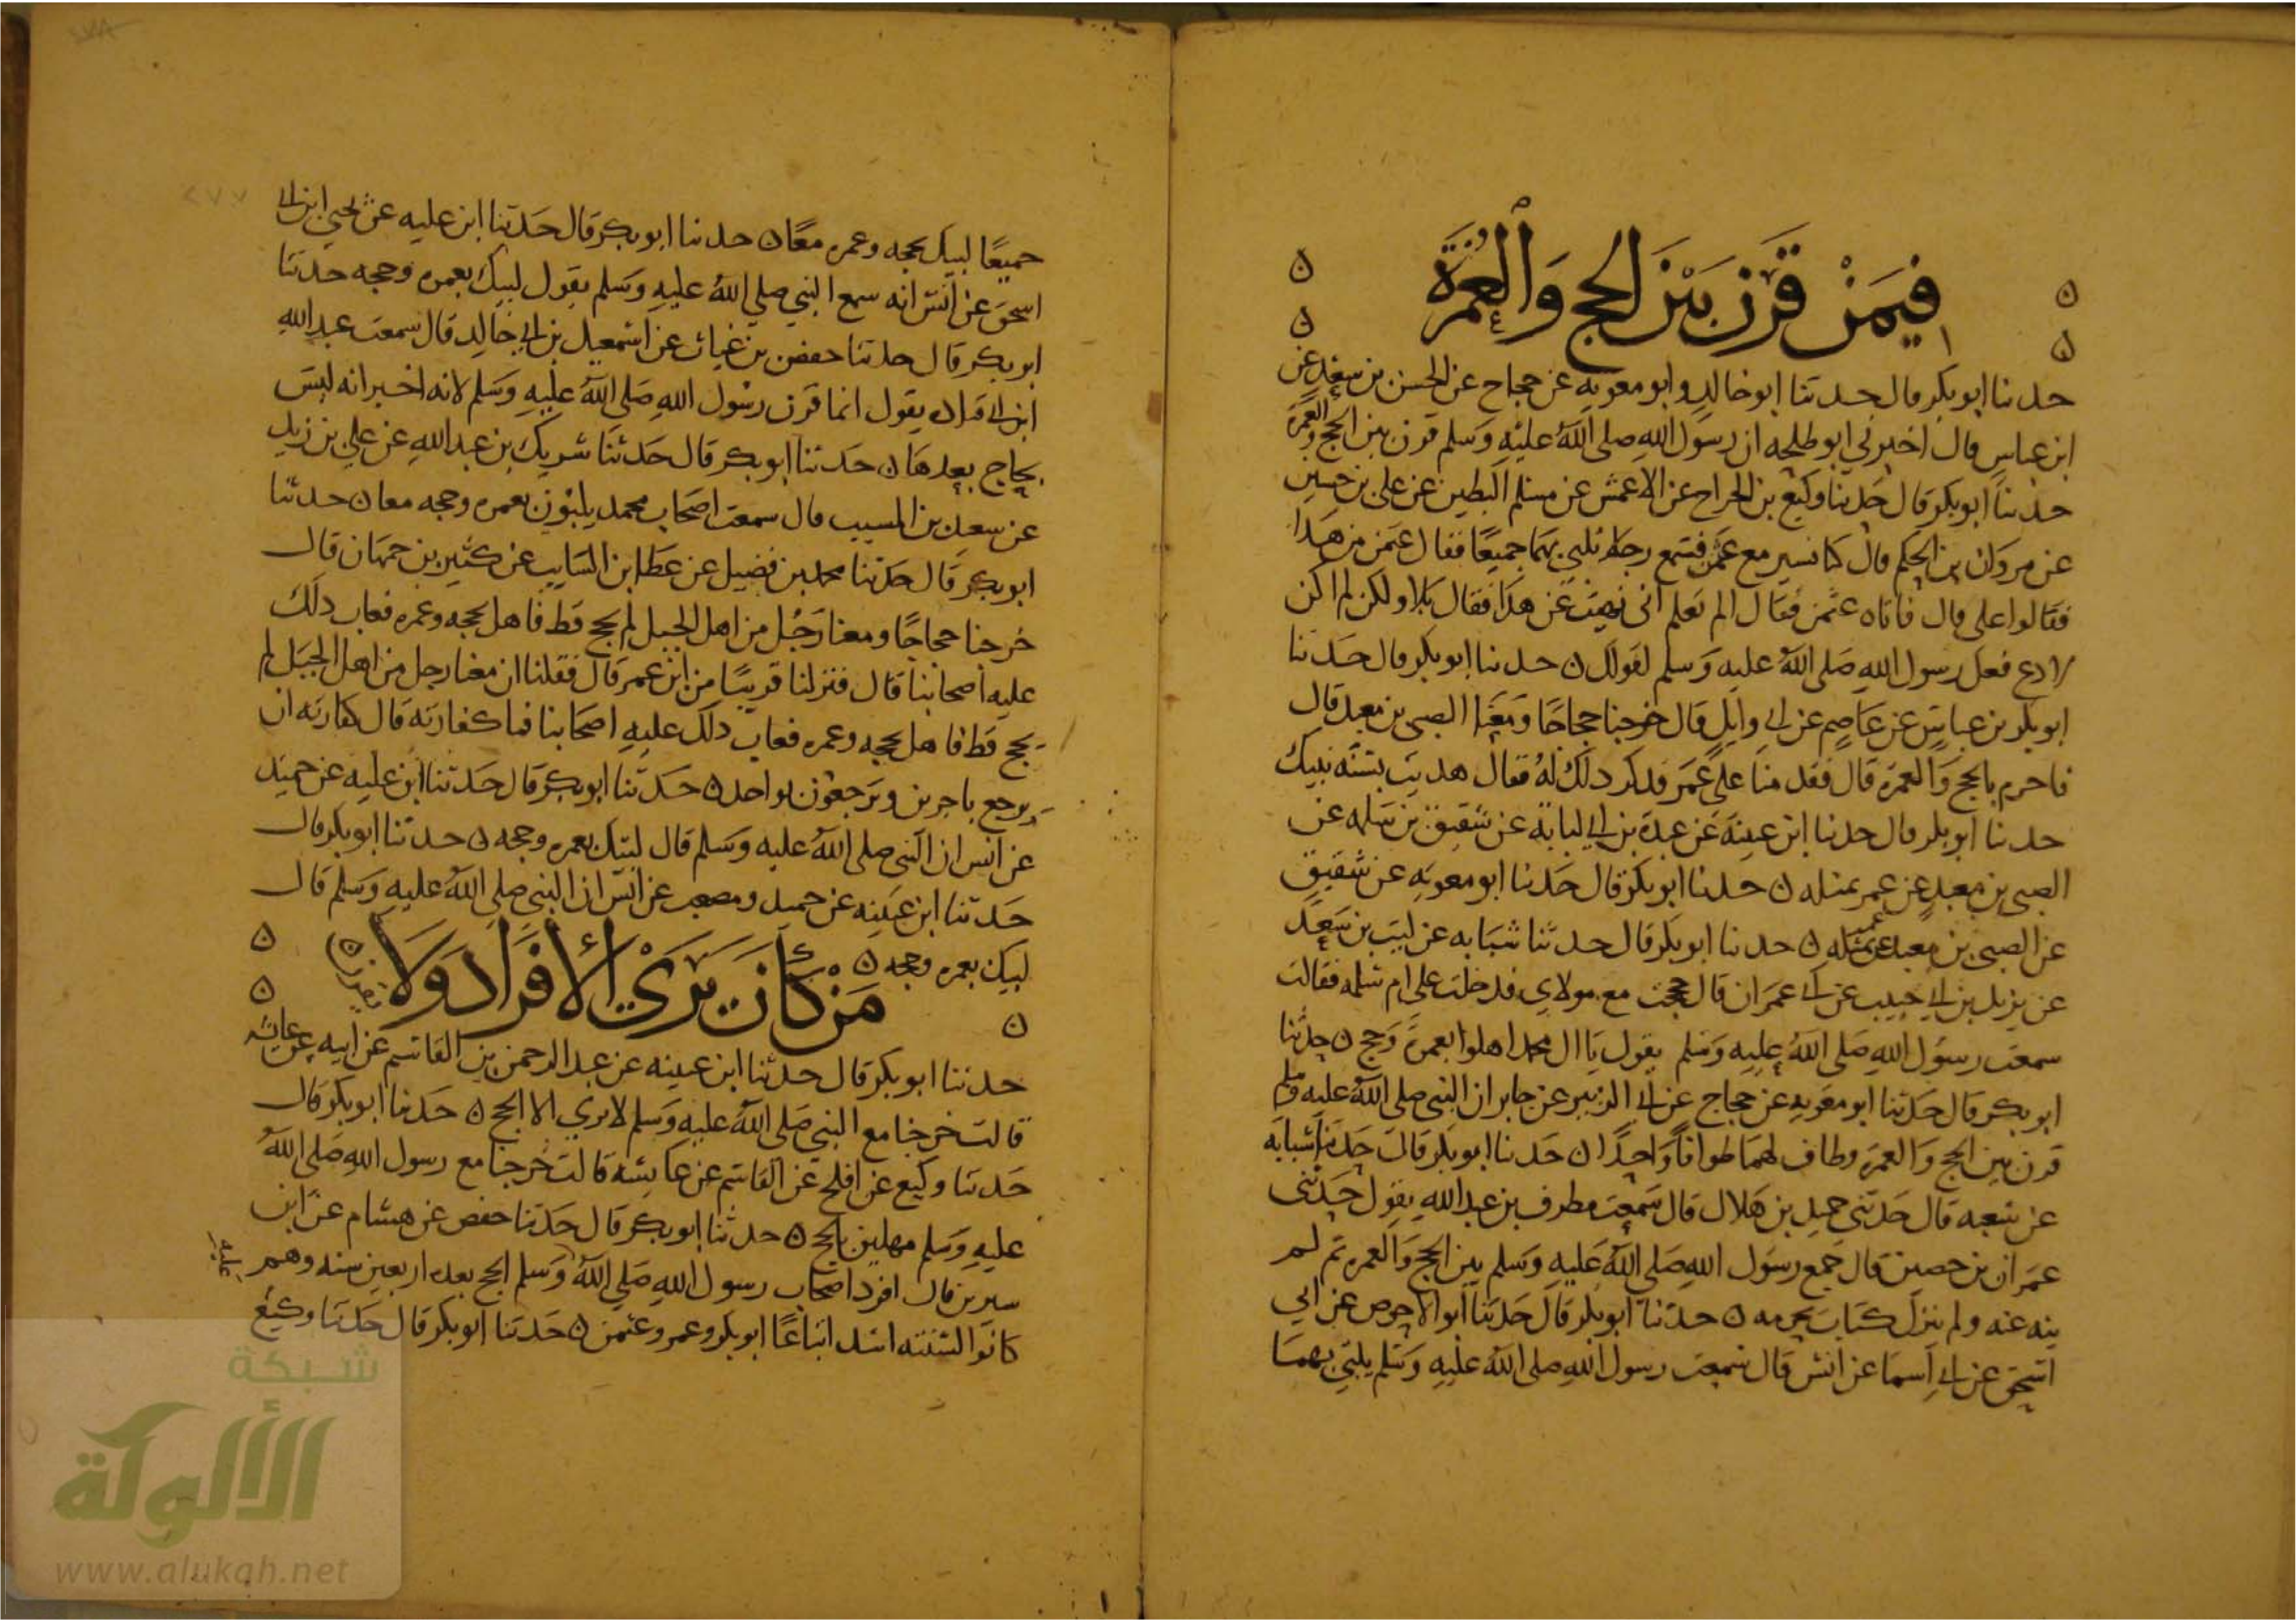 فِيمَنْ قَرَنَ بَيْنَ الحج وَالْعُمْرَةِ
حدثنا ابو بكر قال حدثنا ابو خالد وابو معويه عن حجاج عن الحسن بن سعد عن
ابن عباس قال اخبرني ابو طلحه ان رسول الله صلى الله عليه وسلم قرن بين الحج والعمرة
حدثنا ابو بكر قال حدثنا وكيع بن الجراح عن الاعمش عن مسلم البطين عن علي بن حسين
عن مروان بن الحكم قال كنا نسير مع عثمن فسمع رجلا يلبي بهما جميعا فقال عثمن من هذا
فقالوا علي قال فاتاه عثمن فقال الم تعلم اني نهيت عن هذا فقال بلا ولكن لم اكن
لادع فعل رسول الله صلى الله عليه وسلم لقولك ن حدثنا ابو بكر قال حدثنا
ابو بكر بن عياش عن عاصم عن ابي وايل قال خرجنا حجاجا ومعنا الصبي بن معبد قال
فاحرم بالحج والعمرة قال فقدمنا على عمر فذكر ذلك له فقال هديت بسنه نبيك
حدثنا ابو بكر قال حدثنا ابن عيينة عن عبدة بن ابي لبابة عن شقيق بن سلمه عن
الصبي بن معبد عن عمر بمثله ن حدثنا ابو بكر قال حدثنا ابو معويه عن شقيق
عن الصبي بن معبد عن عمر بمثله ن حدثنا ابو بكر قال حدثنا شبابه عن ليث بن سعد
عن يزيد بن ابي حبيب عن ابي عمران قال حججت مع موالاي فدخلت على ام سلمه فقالت
سمعت رسول الله صلى الله عليه وسلم يقول يا ال محمد اهلوا بعمرة وحج ن حدثنا
ابو بكر قال حدثنا ابو معويه عن حجاج عن ابي الزبير عن جابر ان النبي صلى الله عليه وسلم
قرن بين الحج والعمرة وطاف لهما طوافا واحدا ن حدثنا ابو بكر قال حدثنا شبابه
عن شعبه قال حدثني حميد بن هلال قال سمعت مطرف بن عبد الله يقول حدثني
عمران بن حصين قال جمع رسول الله صلى الله عليه وسلم بين الحج والعمره ثم لم
ينه عنه ولم ينزل كتاب يحرمه ن حدثنا ابو بكر قال حدثنا ابو الاحوص عن ابي
اسحق عن ابي اسما عن انس قال سمعت رسول الله صلى الله عليه وسلم يلبي بهما
جميعا لبيك بحجه وعمره معا ن حدثنا ابو بكر قال حدثنا ابن عليه عن يحيى ابن ابي
اسحق عن انس انه سمع النبي صلي الله عليه وسلم يقول لبيك بعمره وحجه حدثنا
ابو بكر قال حدثنا حفص بن غياث عن اسمعيل بن ابي خالد قال سمعت عبد الله
ابن ابي قتاده يقول انما قرن رسول الله صلى الله عليه وسلم لانه اخبر انه ليس
بحاج بعدها ن حدثنا ابو بكر قال حدثنا شريك بن عبد الله عن علي بن زيد
عن سعيد بن المسيب قال سمعت اصحاب محمد يلبون بعمره وحجه معا ن حدثنا
ابو بكر قال حدثنا محمد بن فضيل عن عطا ابن السايب عن كثير بن جمهان قال
خرجنا حجاجا ومعنا رجل من اهل الجبل لم يحج قط فاهل بحجه وعمره فعاب ذلك
عليه اصحابنا قال فنزلنا قريبا من ابن عمر قال فقلنا ان معنا رجل من اهل الجبل لم
يحج قط فاهل بحجه وعمره فعاب ذلك عليه اصحابنا فما كفارته قال كفارته ان
يرجع باجرين وترجعون بواحد ن حدثنا ابو بكر قال حدثنا ابن عليه عن حميد
عن انس ان النبي صلى الله عليه وسلم قال لبيك بعمره وحجه ن حدثنا ابو بكر قال
حدثنا ابن عيينه عن حميد ومصعب عن انس ان النبي صلى الله عليه وسلم قال
لبيك بعمره وحجه ن
مَنْ كَانَ يَرَىْ الأفرَاد وَلَا
حدثنا ابو بكر قال حدثنا ابن عيينه عن عبد الرحمن بن القاسم عن ابيه عن عائشه
قالت خرجنا مع النبي صلى الله عليه وسلم لا نرى الا الحج ن حدثنا ابو بكر قال
حدثنا وكيع عن افلح عن القاسم عن عائشه قالت خرجنا مع رسول الله صلى الله
عليه وسلم مهلين بالحج ن حدثنا ابو بكر قال حدثنا حفص عن هشام عن ابن
سيرين قال افرد اصحاب رسول الله صلي الله وسلم الحج بعده اربعين سنه وهم
عليه
كانوا لسنته اشد اتباعا ابو بكر وعمر وعثمن ن حدثنا ابو بكر قال حدثنا وكيع
شبكة
الألوكة
www.alukah.net